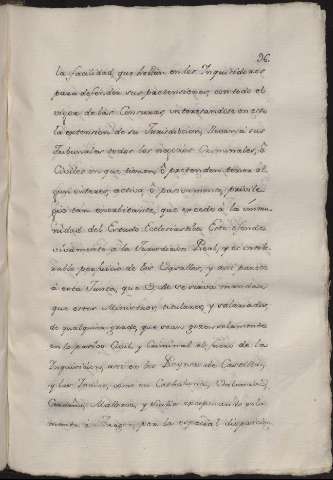 96.
la facilidad, que hallan en los Inquisidores
para defender sus pretensiones con todo el
rigor de las Censuras, interesandose en esto
la extension de su Jurisdiccion, llevan à sus
Tribunales todos los negocios Criminales, ò
Civiles en que tienen, ò pretenden tener al
gun interes, activa, ò pasivamente, privile
gio tan exorbitante, que excede à la inmu
nidad del Estado Eclesiastico. Esto ofende
vivamente à la Jurisdicion Real, y es intole
rable perjuicio de los Vasallos, y asi parece
à esta Junta, que V. M. se sirva mandar,
que estos Ministros, titulares, y salariados
de qualquier grado, que sean gozen solamente
en lo pasivo Civil, y Criminal el fuero de la
Inquisicion, asi en los Reynos de Castilla,
y las Indias, como en Cathaluña,
Cerdeña, Mallorca, y Sicilia exceptuando sola
mente à Aragon, por la especial disposicion